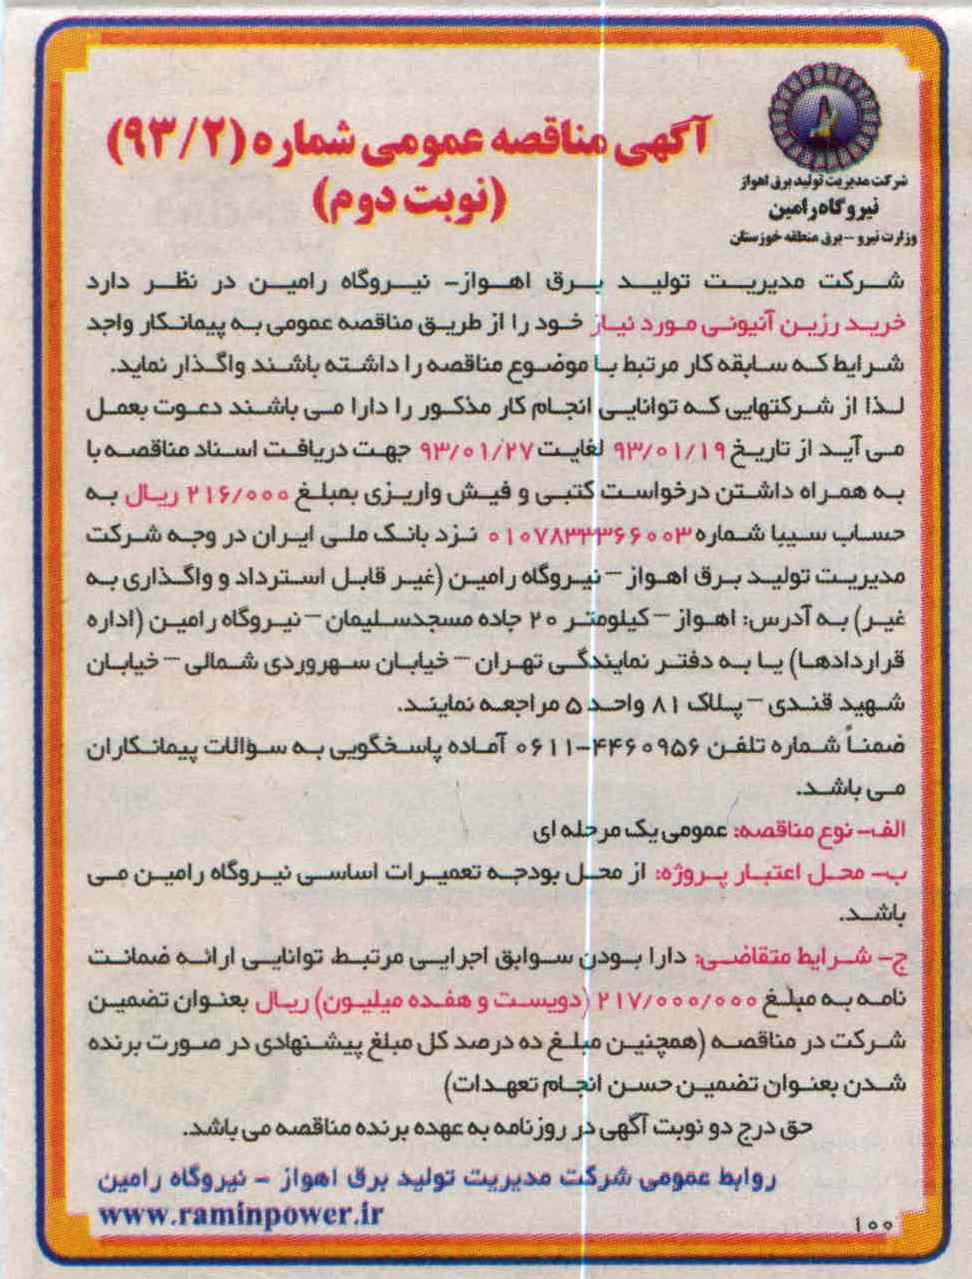 آگهی مناقصه عمومی شماره (۹۳/۲)
(نوبت دوم)
شرکت مدیریت تولید برق اهواز
نیروگاه رامین
وزارت نیرو - برق منطقه خوزستان
شرکت مدیریت تولید برق اهواز- نیروگاه رامین در نظر دارد
خرید رزین آنیونی مورد نیاز خود را از طریق مناقصه عمومی به پیمانکار واجد
شرایط که سابقه کار مرتبط با موضوع مناقصه را داشته باشند واگذار نماید.
لذا از شرکتهایی که توانایی انجام کار مذکور را دارا می باشند دعوت بعمل
می آید از تاریخ ۹۳/۰۱/۱۹ لغایت ۹۳/۰۱/۲۷ جهت دریافت اسناد مناقصه با
به همراه داشتن درخواست کتبی و فیش واریزی بمبلغ ۲۱۶/۰۰۰ ریال به
حساب سیبا شماره ۰۱۰۷۸۳۳۳۶۶۰۰۳ نزد بانک ملی ایران در وجه شرکت
مدیریت تولید برق اهواز – نیروگاه رامین (غیر قابل استرداد و واگذاری به
غیر) به آدرس: اهواز – کیلومتر ۲۰ جاده مسجدسلیمان – نیروگاه رامین (اداره
قراردادها) یا به دفتر نمایندگی تهران – خیابان سهروردی شمالی – خیابان
شهید قندی – پلاک ۸۱ واحد ۵ مراجعه نمایند.
ضمناً شماره تلفن ۴۴۶۰۹۵۶-۰۶۱۱ آماده پاسخگویی به سؤالات پیمانکاران
می باشد.
الف- نوع مناقصه: عمومی یک مرحله ای
ب- محل اعتبار پروژه: از محل بودجه تعمیرات اساسی نیروگاه رامین می
باشد.
ج- شرایط متقاضی: دارا بودن سوابق اجرایی مرتبط، توانایی ارائه ضمانت
نامه به مبلغ ۲۱۷/۰۰۰/۰۰۰ (دویست و هفده میلیون) ریال بعنوان تضمین
شرکت در مناقصه (همچنین مبلغ ده درصد کل مبلغ پیشنهادی در صورت برنده
شدن بعنوان تضمین حسن انجام تعهدات)
حق درج دو نوبت آگهی در روزنامه به عهده برنده مناقصه می باشد.
روابط عمومی شرکت مدیریت تولید برق اهواز - نیروگاه رامین
www.raminpower.ir
۱۰۰